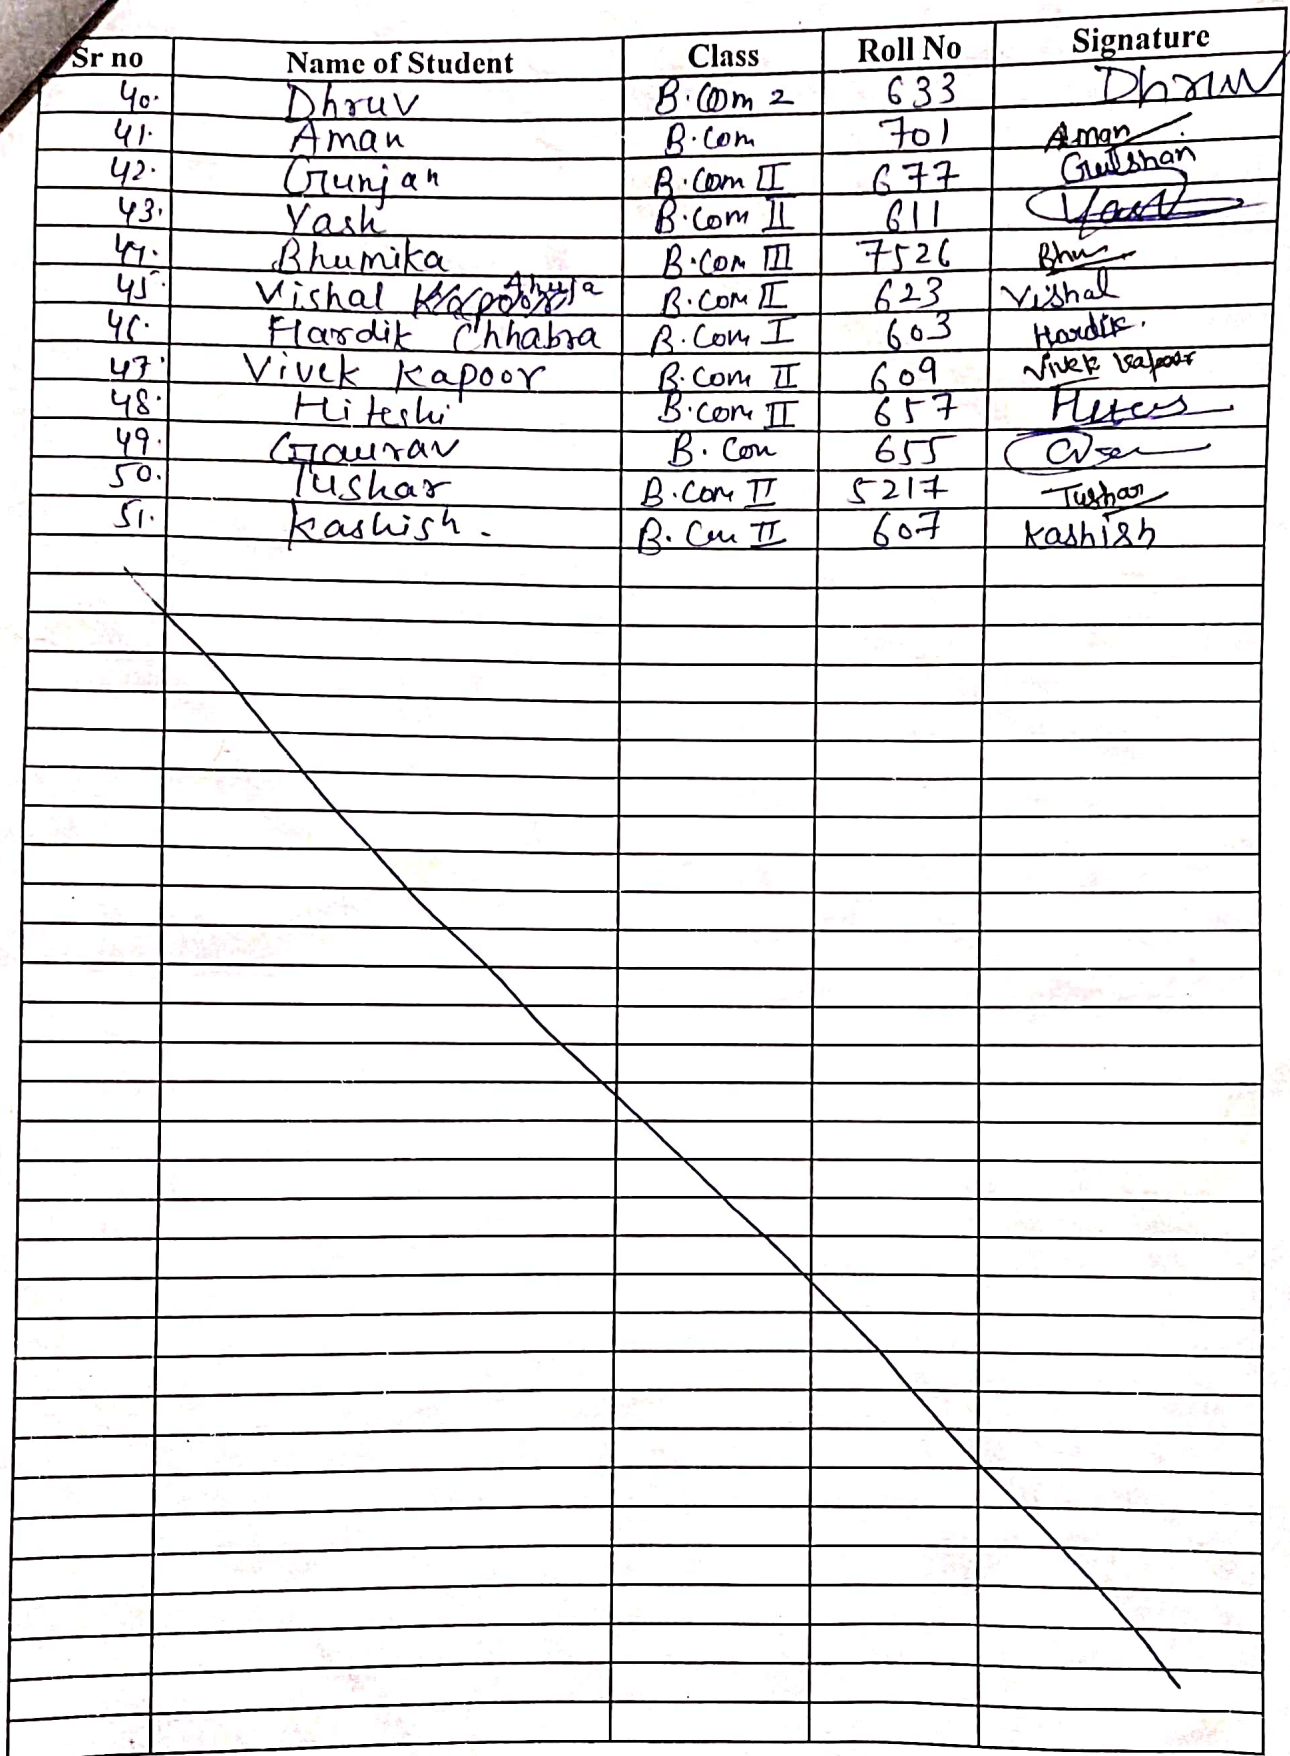 Sr no Name of Student Class Roll No Signature
40. Dhruv B.Com 2 633 Dhruv
41. Aman B.Com 701 Aman
42. Gunjan B.Com II 677 Gulshan
43. Yash B.Com II 611 Yash
44. Bhumika B.Com III 7526 Bhu
45. Vishal Ahuja B.Com II 623 Vishal
46. Hardik Chhabra B.Com I 603 Hardik.
47. Vivek Kapoor B.Com II 609 Vivek Kapoor
48. Hiteshi B.Com II 657
49. Gaurav B.Com 655
50. Tushar B.Com II 5217 Tushar
51. Kashish. B.Com II 607 Kashish